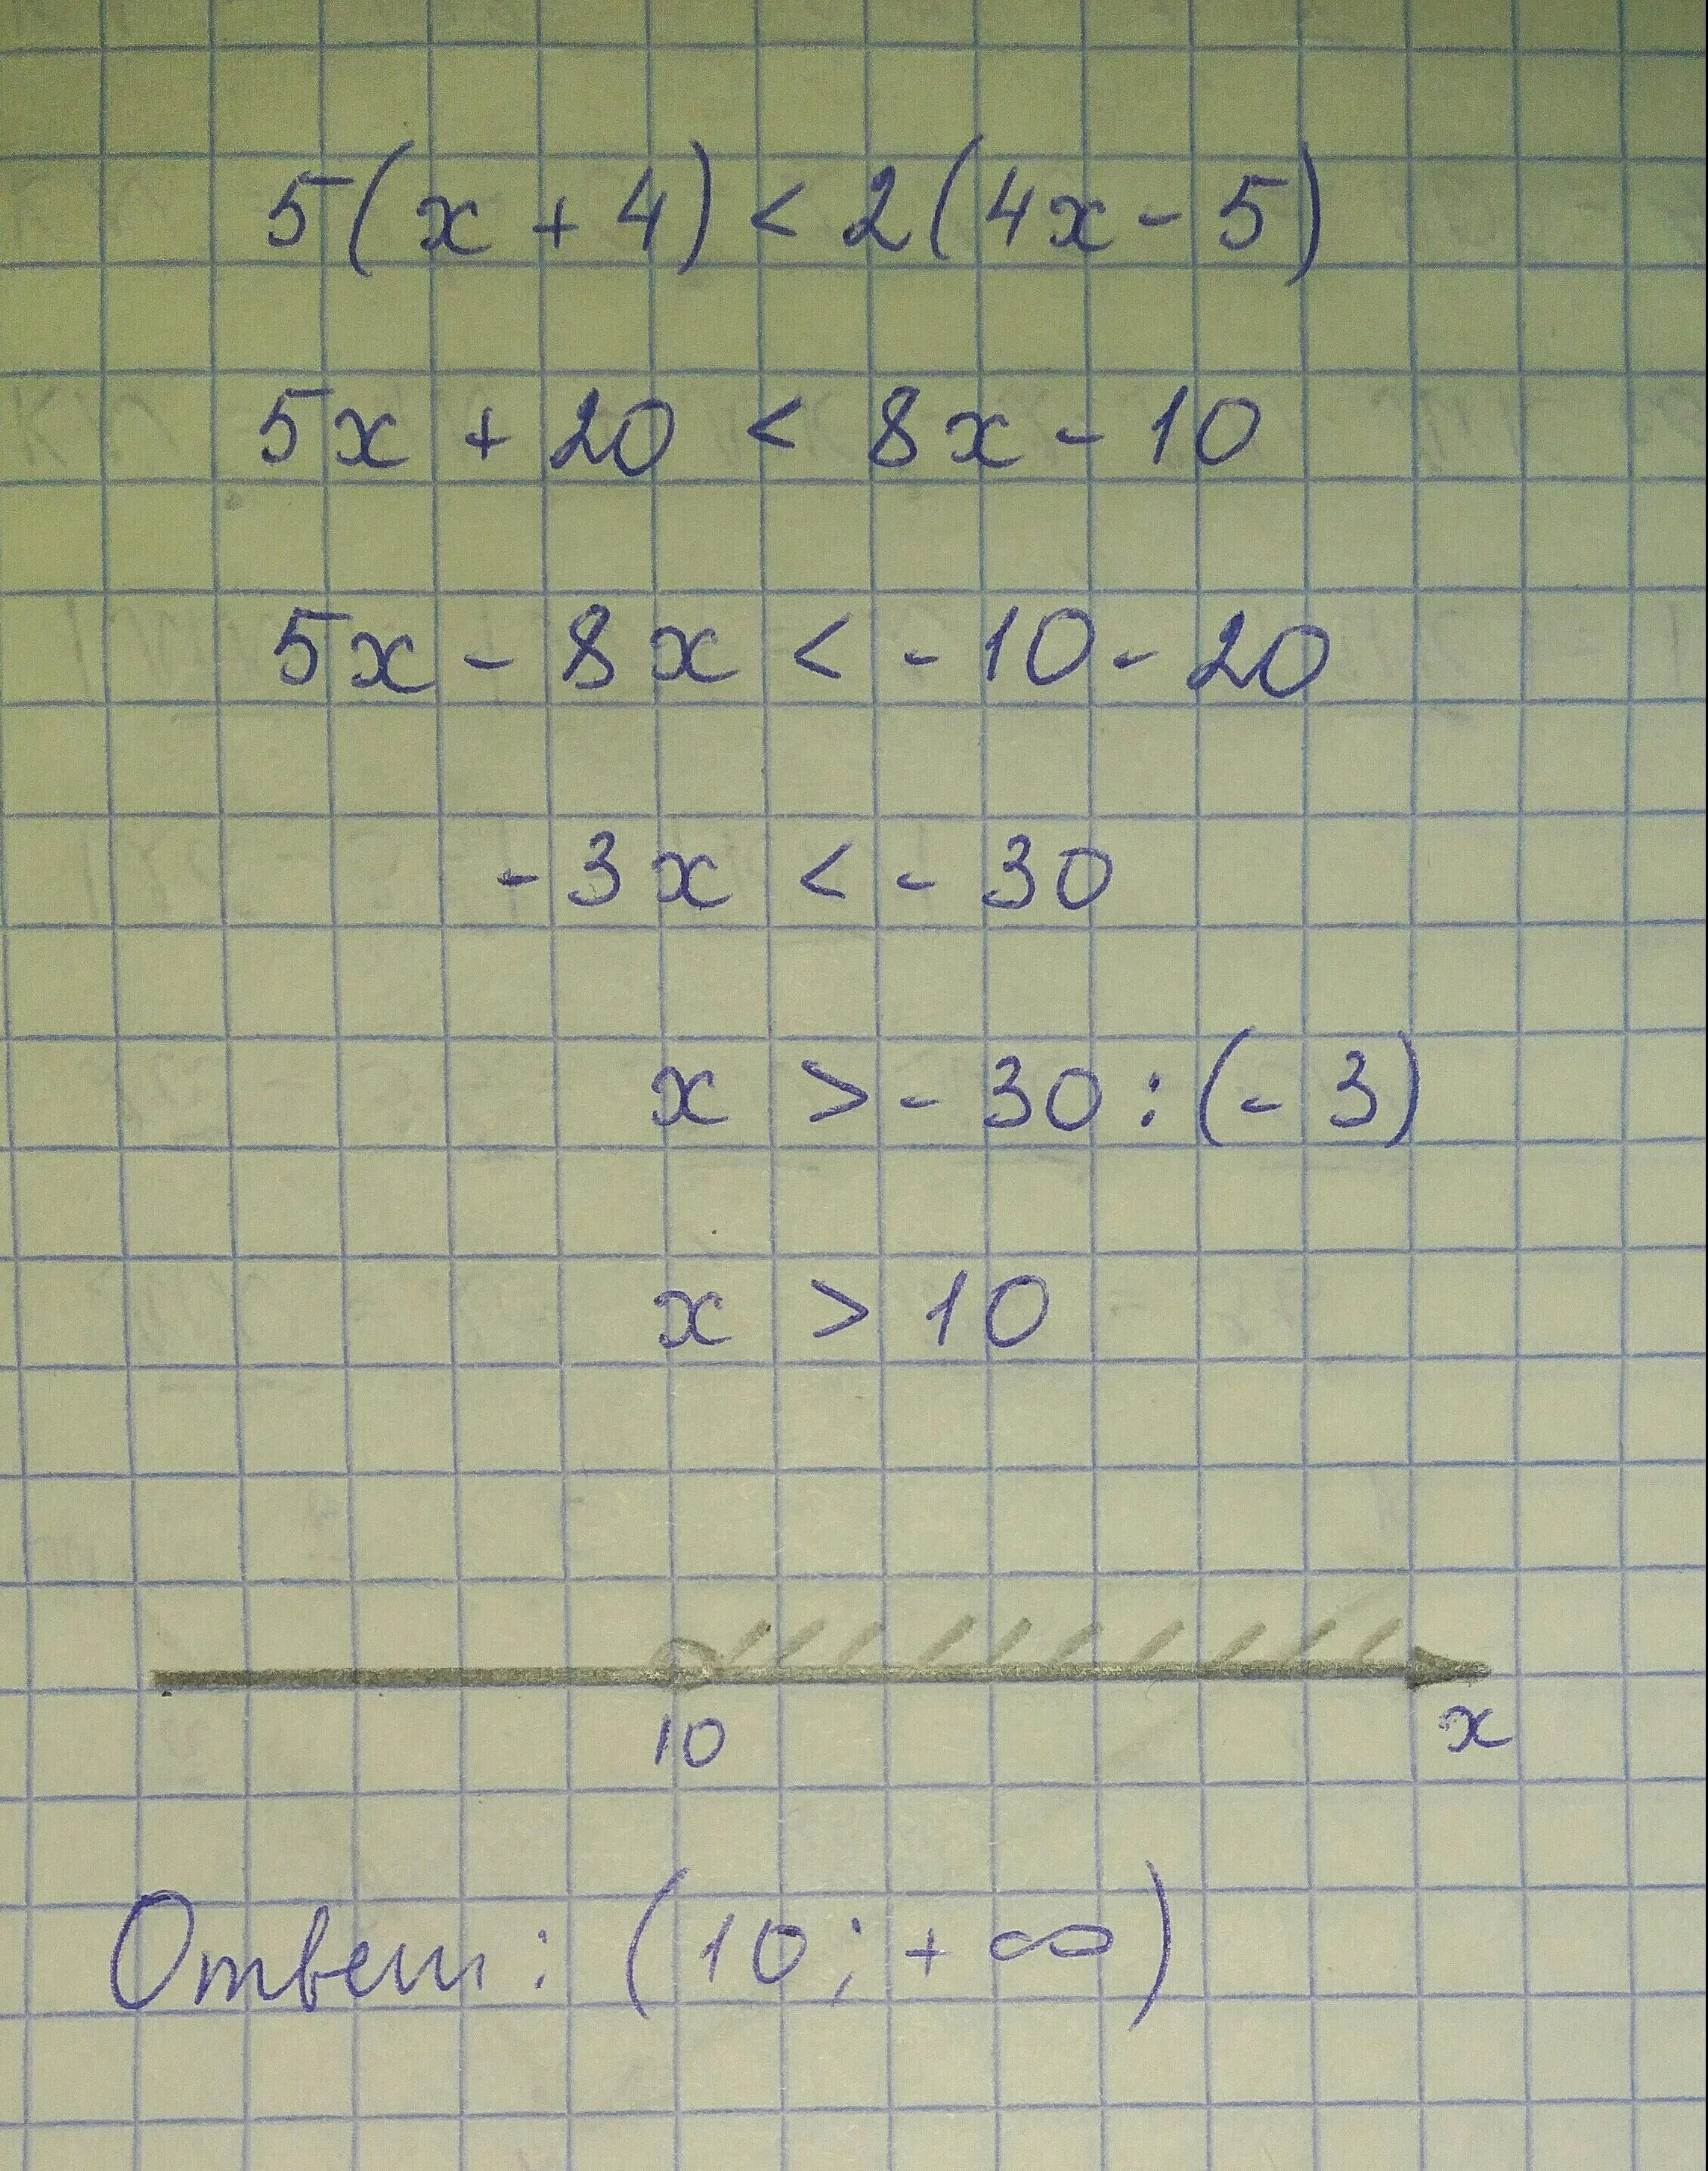 5(x + 4) < 2(4x - 5)
5x + 20 < 8x - 10
5x - 8x < - 10 - 20
- 3x < - 30
x > - 30 : (- 3)
x > 10
10 x
Ответ: (10; + ∞)